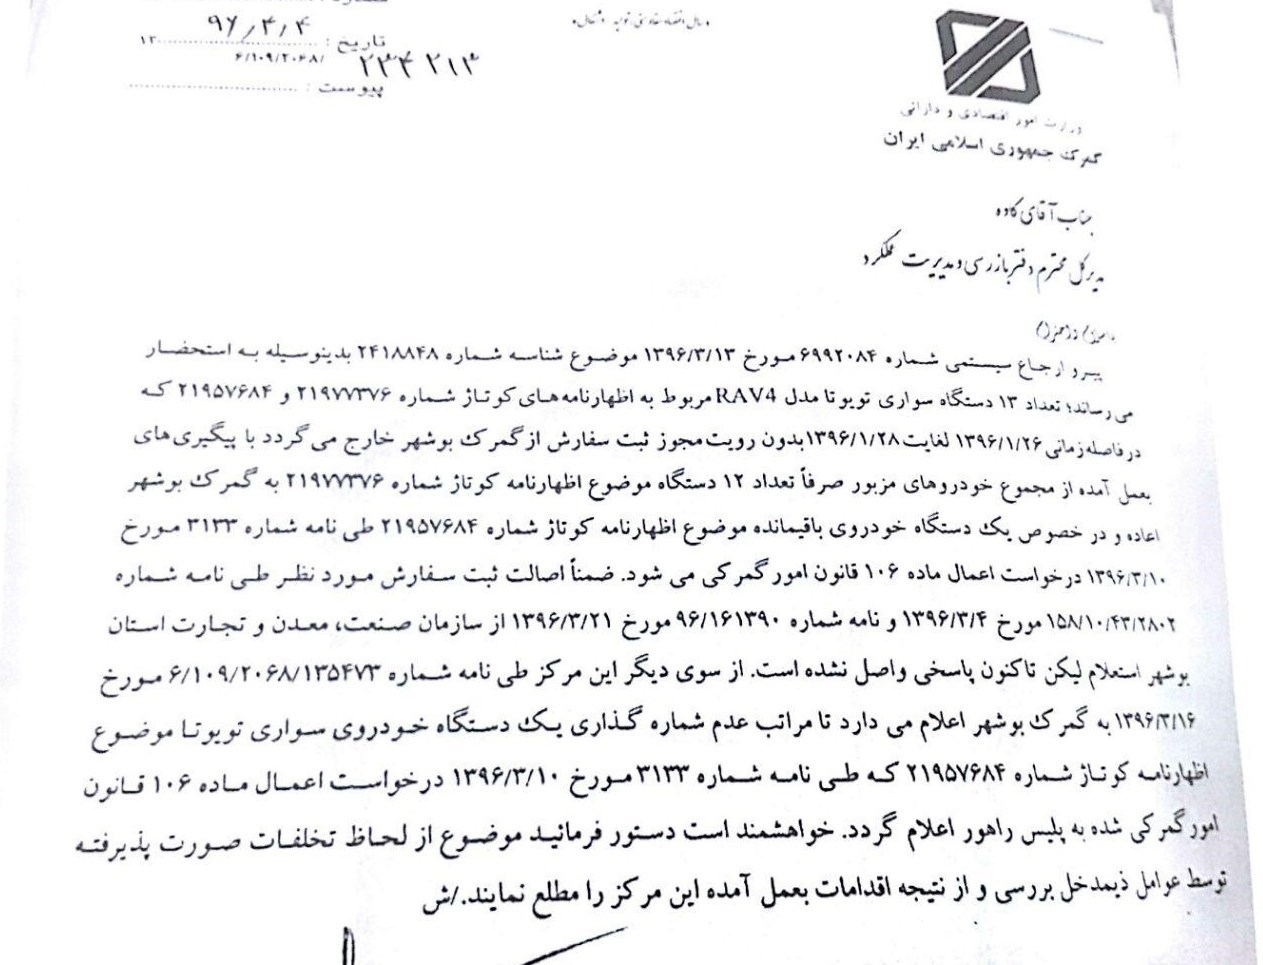 «سال اقتصاد مقاومتی، تولید - اشتغال»
۹۶/۴/۴
تاریخ : ۱۳
۶/۱۰۹/۲۰۶۸/
۲۳۴۲۱۳
پیوست :
وزارت امور اقتصادی و دارائی
گمرک جمهوری اسلامی ایران
جناب آقای کاوه
مدیرکل محترم دفتر بازرسی و مدیریت عملکرد
باسلام و احترام
پیرو ارجاع سیستمی شماره ۶۹۹۲۰۸۴ مورخ ۱۳۹۶/۳/۱۳ موضوع شناسه شماره ۲۴۱۸۸۴۸ بدینوسیله به استحضار
می رساند؛ تعداد ۱۳ دستگاه سواری تویوتا مدل RAV4 مربوط به اظهارنامه‌های کوتاژ شماره ۲۱۹۷۷۳۷۶ و ۲۱۹۵۷۶۸۴ که
در فاصله زمانی ۱۳۹۶/۱/۲۶ لغایت ۱۳۹۶/۱/۲۸ بدون رویت مجوز ثبت سفارش از گمرک بوشهر خارج می گردد با پیگیری های
بعمل آمده از مجموع خودروهای مزبور صرفاً تعداد ۱۲ دستگاه موضوع اظهارنامه کوتاژ شماره ۲۱۹۷۷۳۷۶ به گمرک بوشهر
اعاده و در خصوص یک دستگاه خودروی باقیمانده موضوع اظهارنامه کوتاژ شماره ۲۱۹۵۷۶۸۴ طی نامه شماره ۳۱۳۳ مورخ
۱۳۹۶/۳/۱۰ درخواست اعمال ماده ۱۰۶ قانون امور گمرکی می شود. ضمناً اصالت ثبت سفارش مورد نظر طی نامه شماره
۱۵۸/۱۰/۴۳/۲۸۰۲ مورخ ۱۳۹۶/۳/۴ و نامه شماره ۹۶/۱۶۱۳۹۰ مورخ ۱۳۹۶/۳/۲۱ از سازمان صنعت، معدن و تجارت استان
بوشهر استعلام لیکن تاکنون پاسخی واصل نشده است. از سوی دیگر این مرکز طی نامه شماره ۶/۱۰۹/۲۰۶۸/۱۳۵۴۷۳ مورخ
۱۳۹۶/۳/۱۶ به گمرک بوشهر اعلام می دارد تا مراتب عدم شماره گذاری یک دستگاه خودروی سواری تویوتا موضوع
اظهارنامه کوتاژ شماره ۲۱۹۵۷۶۸۴ که طی نامه شماره ۳۱۳۳ مورخ ۱۳۹۶/۳/۱۰ درخواست اعمال ماده ۱۰۶ قانون
امور گمرکی شده به پلیس راهور اعلام گردد. خواهشمند است دستور فرمائید موضوع از لحاظ تخلفات صورت پذیرفته
توسط عوامل ذیمدخل بررسی و از نتیجه اقدامات بعمل آمده این مرکز را مطلع نمایند./ش